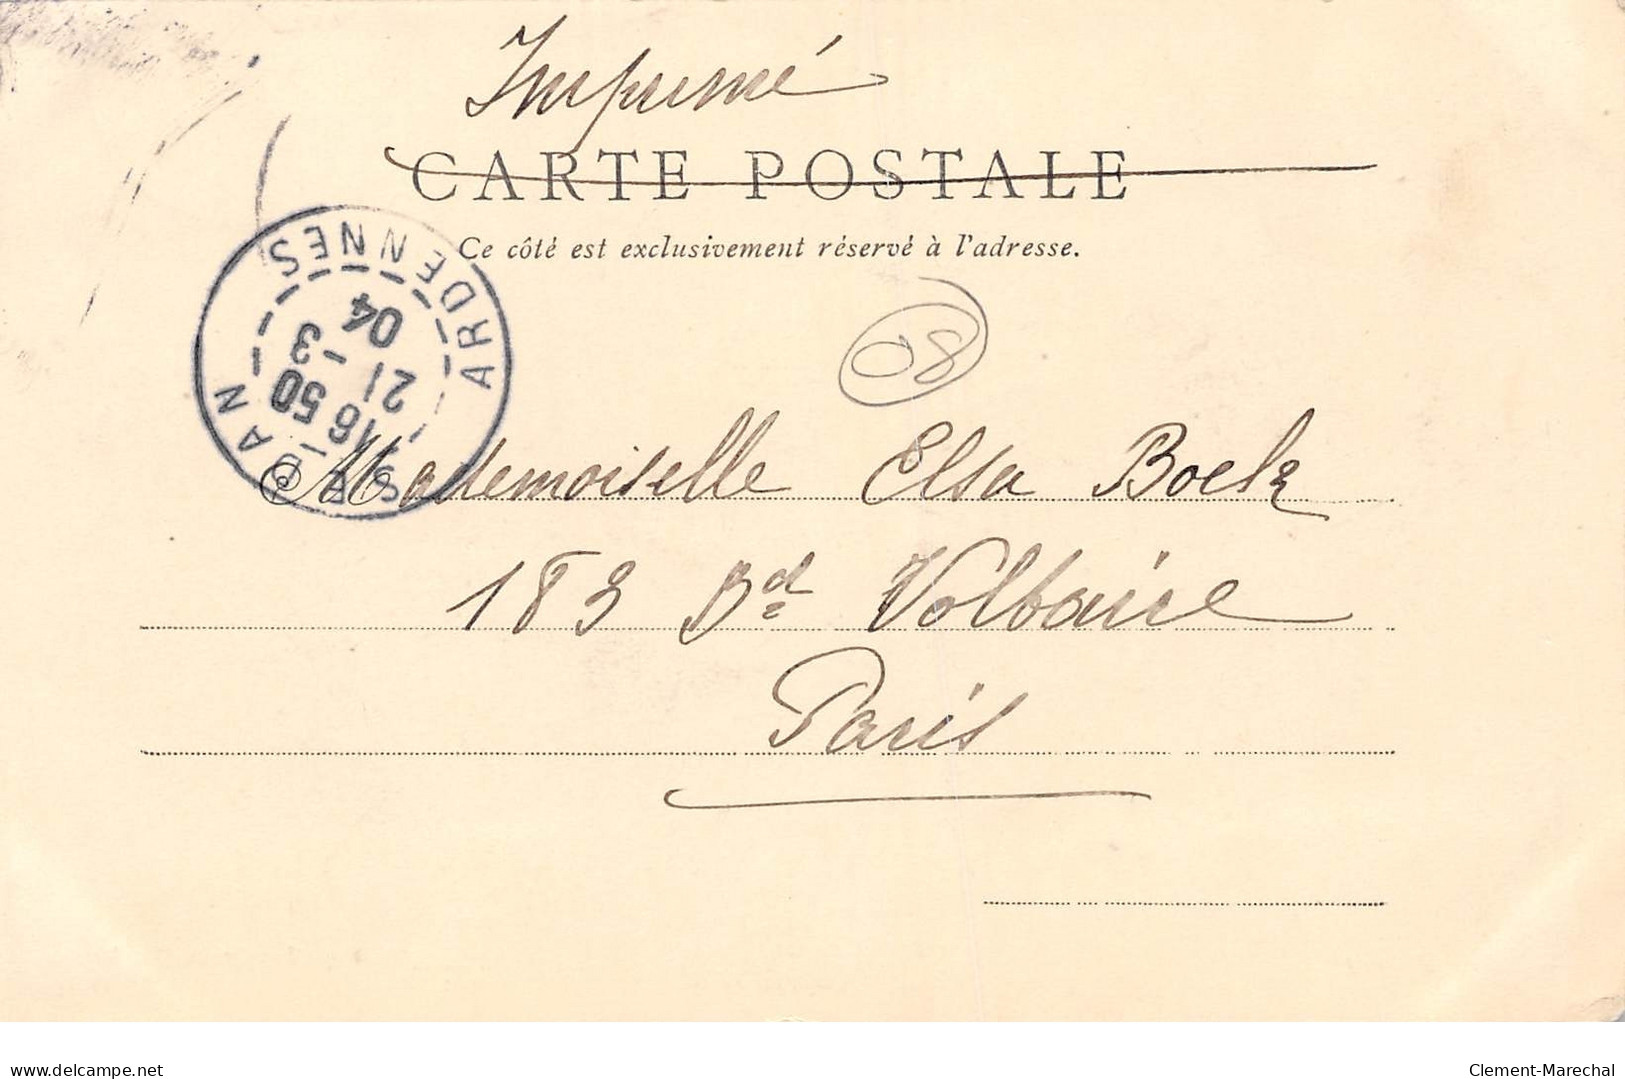 Imprimé
CARTE POSTALE
Ce côté est exclusivement réservé à l'adresse.
SEDAN
ARDENNES
16 50
21 -3
04
08
Mademoiselle Elsa Boelz
183 Bd Voltaire
Paris
www.delcampe.net
Clement-Marechal